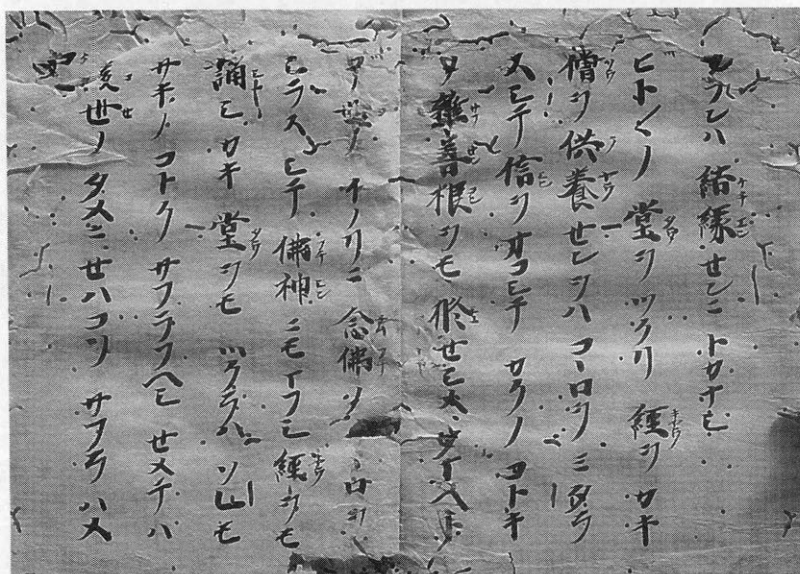 結縁セムニ トカナシ
ヒト〱ノ 堂ヲツクリ 經ヲカキ
僧ヲ供養セムヲハ コヽロヲミタラ
スシテ 信ヲオコシテ カクノコトキ
ノ雜善根ヲモ 修セシメ
世ノ イノリニ 念佛ノ
シラスシテ 佛神ニモイフシ 經ヲモ
誦シカキ 堂ヲモ ツクラハ ソレモ
サキノ コトク サフラフヘシ セメテハ
世ノ タメニ セハコソ サフラハメ